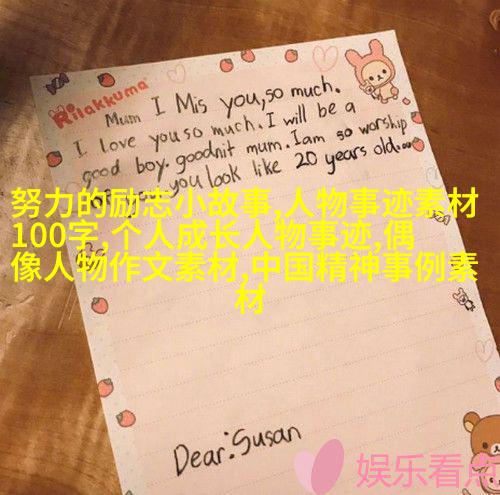 Rilakkuma
Mum I Mis you,so much.
I love you so much. I will be a
good boy. goodnit mum. I am so worship
you look like 20 years old.
努力的励志小故事,人物事迹素材
100字,个人成长人物事迹,偶
像人物作文素材,中国精神事例素
材
Dear:Susan
娱乐看点